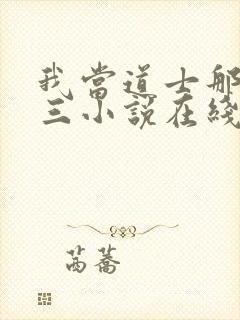 我當道士那
三小說在綫
萵蕎